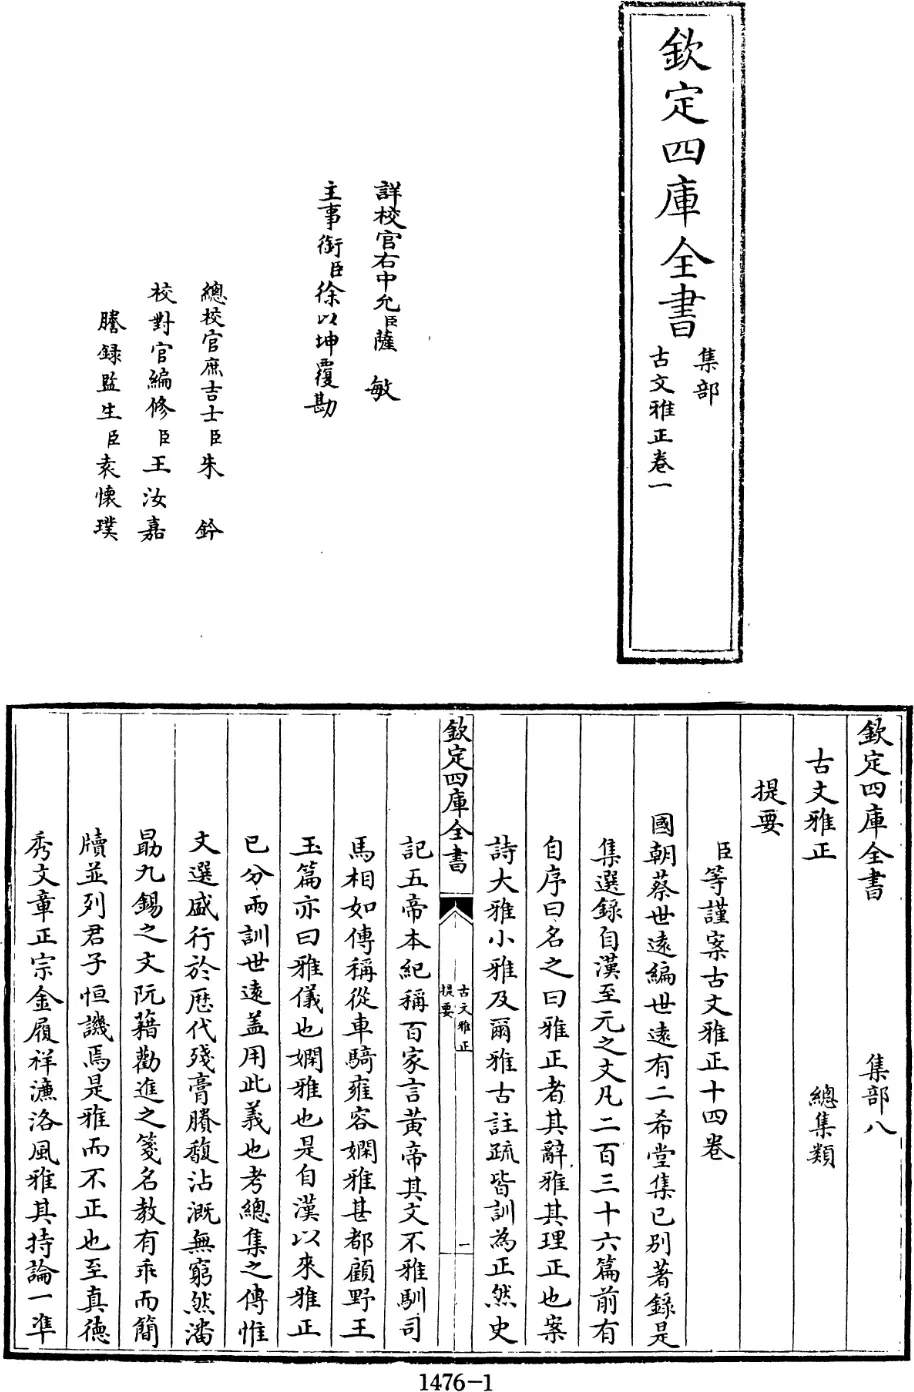 欽定四庫全書
集部
古文雅正卷一
詳校官右中允臣薩敏
主事銜臣徐以坤覆勘
總校官庶吉士臣朱鈐
校對官編修臣王汝嘉
謄録監生臣袁懷璞
欽定四庫全書 集部八
古文雅正 總集類
提要
臣等謹案古文雅正十四卷
國朝蔡世逺編世逺有二希堂集已別著錄是
集選録自漢至元之文凡二百三十六篇前有
自序曰名之曰雅正者其辭雅其理正也案
詩大雅小雅及爾雅古註疏皆訓為正然史
欽定四庫全書
古文雅正
提要
一
記五帝本紀稱百家言黃帝其文不雅馴司
馬相如傳稱從車騎雍容嫻雅甚都顧野王
玉篇亦曰雅儀也嫻雅也是自漢以來雅正
已分兩訓世逺盖用此義也考總集之傳惟
文選盛行於歴代殘膏賸馥沾溉無窮然潘
勗九錫之文阮籍勸進之箋名教有乖而簡
牘並列君子恒譏焉是雅而不正也至真徳
秀文章正宗金履祥濓洛風雅其持論一準
1476-1